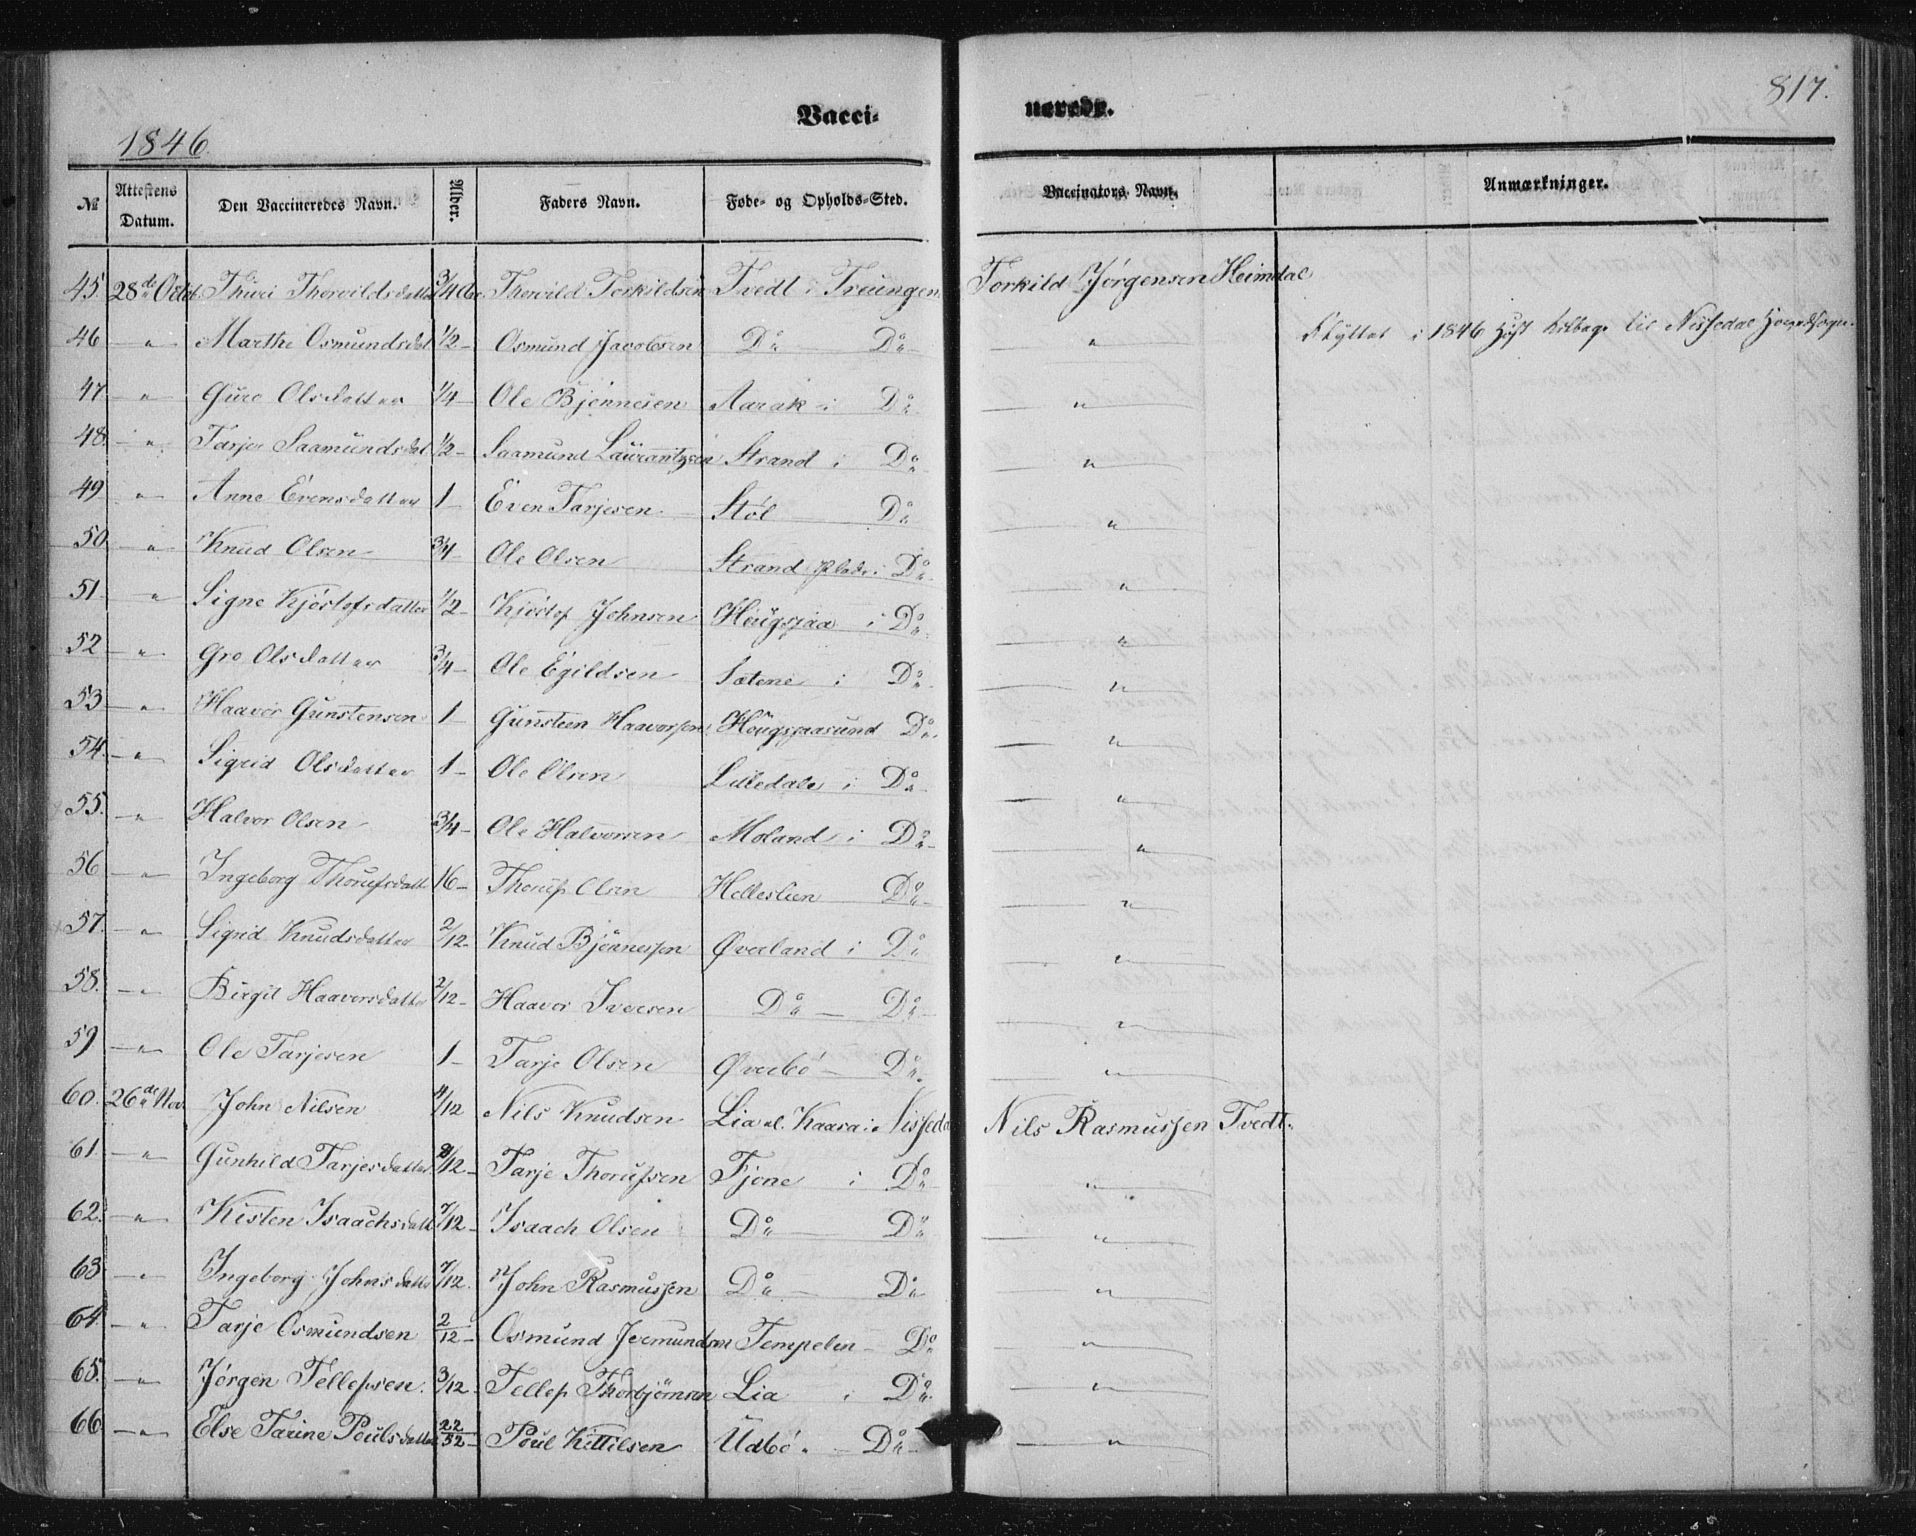 817.
Vacci- nerede.
1846.
№ Attestens Datum. Den Vaccineredes Navn. Alder. Faders Navn. Føde- og Opholds-Sted. Vaccinators Navn. Anmærkninger.
45. 28de Octob. Thuri Thorvildsdatter 3/4 Aar Thorvild Torkildsen Tvedt i Treungen Torkild Jørgensen Heimdal
46 " Marthe Osmundsdat 1/2 Osmund Jacobsen Do Do " Flyttet i 1846 tilbage til Nissedal Hovedsogn.
47. " Guro Olsdatter 1/4 Ole Bjønnesen Aarak i Do "
48. " Tarje Saamundsdat 1/2 Saamund Laurantzen Strand i Do "
49 " Anne Evensdatter 1 Even Tarjesen Støl Do "
50. " Knud Olsen 3/4 Ole Olsen Strand Plads i Do "
51. " Signe Kjøstofsdatter 1/2 Kjøstof Johnsen Høugsjaa i Do "
52 " Gro Olsdatter 3/4 Ole Egildsen Sætene i Do "
53 " Haavor Gunstensen 1 Gunsteen Haavorsen Høugsjaasund Do "
54. " Sigrid Olsdatter 1 Ole Olsen Lilledale i Do "
55. " Halvor Olsen 3/4 Ole Halvorsen Moland i Do "
56 " Ingeborg Thorufsdatt 16 Thoruf Olsen Helleslien Do "
57. " Sigrid Knudsdatter 2/12 Knud Bjønnessen Øverland i Do "
58. " Birgit Haavorsdatter 2/12 Haavor Iversen Do Do "
59 " Ole Tarjesen 1 Tarje Olsen Øverbø Do "
60. 26de Nov. John Nilsen 4/12 Nils Knudsen Lia al. Kaasa i Nissedal Nils Rasmussen Tvedt.
61. " Gunhild Tarjesdatter 8/12 Tarje Thorufsen Fjone i Do "
62. " Kisten Isaachsdatt 7/12 Isaach Olsen Do Do "
63. " Ingeborg Johnsdatter 7/12 John Rasmussen Do Do "
64. " Tarje Osmundsen 2/12 Osmund Jermundsen Tempelen Do "
65. " Jørgen Tellefsen. 3/12 Tellef Thorbjørnsen Lia i Do "
66. " Else Tarine Poulsdatter 22/52 Poul Kittilsen Udbø. Do "